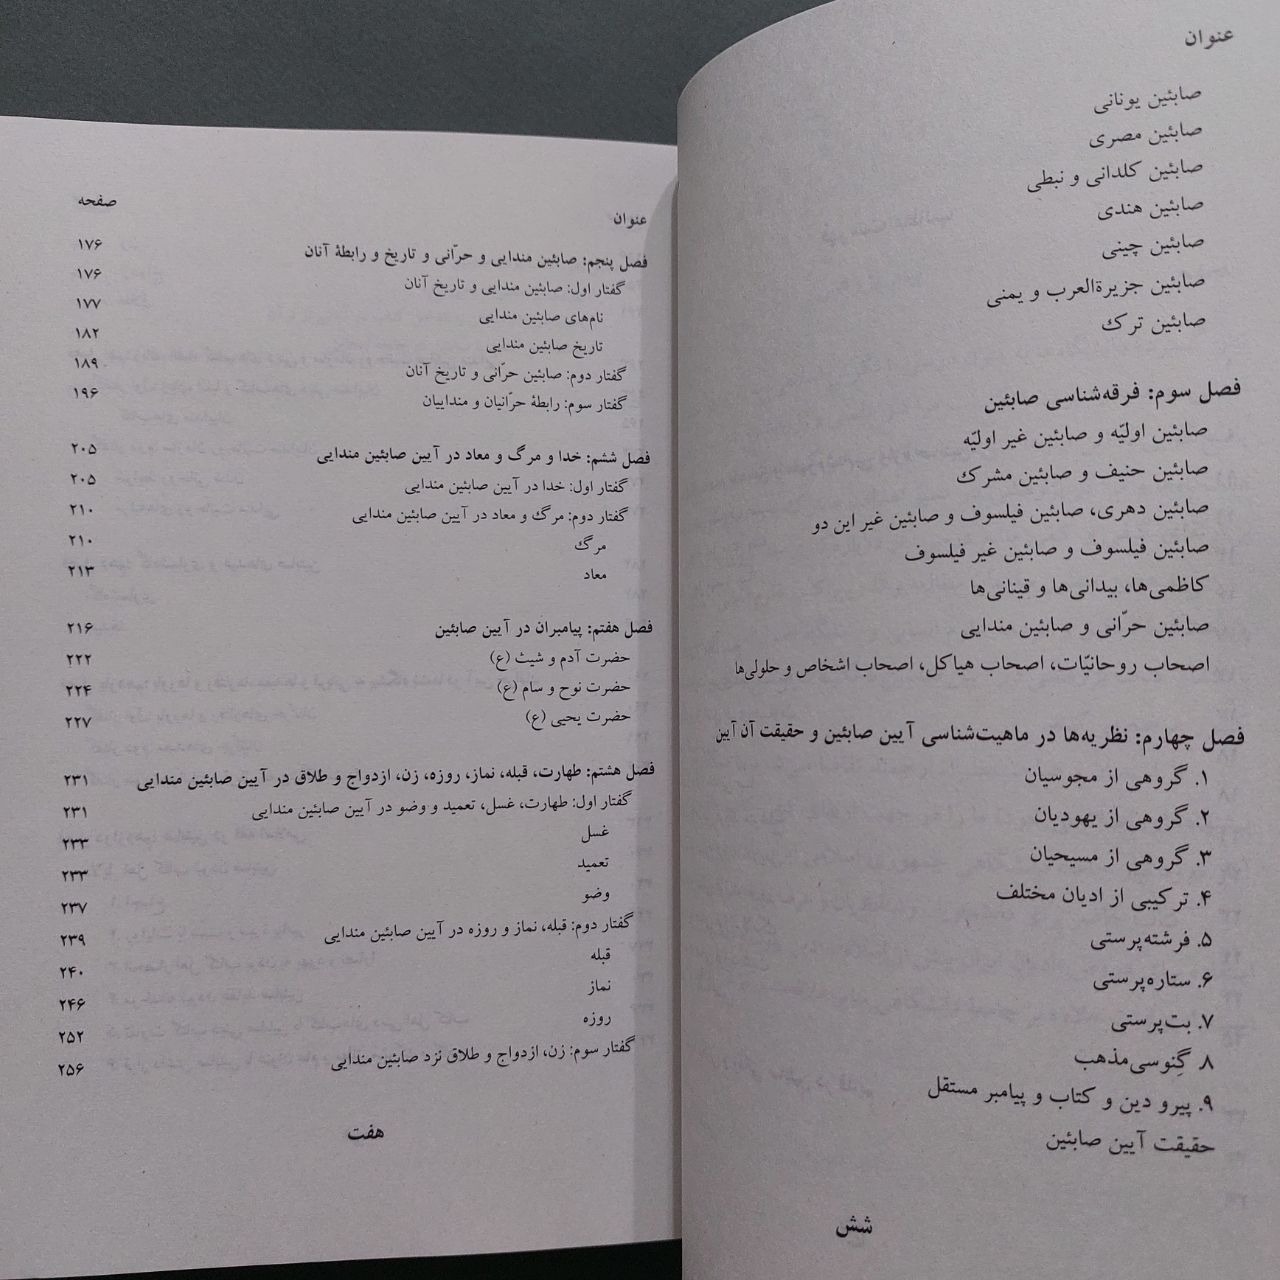 عنوان
صابئین یونانی
صابئین مصری
صابئین کلدانی و نبطی
صابئین هندی
صابئین چینی
صابئین جزیرةالعرب و یمنی
صابئین ترک
فصل سوم: فرقه‌شناسی صابئین
صابئین اولیّه و صابئین غیر اولیّه
صابئین حنیف و صابئین مشرک
صابئین دهری، صابئین فیلسوف و صابئین غیر این دو
صابئین فیلسوف و صابئین غیر فیلسوف
کاظمی‌ها، بیدانی‌ها و قینانی‌ها
صابئین حرّانی و صابئین مندایی
اصحاب روحانیّات، اصحاب هیاکل، اصحاب اشخاص و حلولی‌ها
فصل چهارم: نظریه‌ها در ماهیت‌شناسی آیین صابئین و حقیقت آن آیین
۱. گروهی از مجوسیان
۲. گروهی از یهودیان
۳. گروهی از مسیحیان
۴. ترکیبی از ادیان مختلف
۵. فرشته‌پرستی
۶. ستاره‌پرستی
۷. بت‌پرستی
۸. گِنوسی‌مذهب
۹. پیرو دین و کتاب و پیامبر مستقل
حقیقت آیین صابئین
شش
عنوان صفحه
فصل پنجم: صابئین مندایی و حرّانی و تاریخ و رابطهٔ آنان ۱۷۶
گفتار اول: صابئین مندایی و تاریخ آنان ۱۷۶
نام‌های صابئین مندایی ۱۷۷
تاریخ صابئین مندایی ۱۸۲
گفتار دوم: صابئین حرّانی و تاریخ آنان ۱۸۹
گفتار سوم: رابطهٔ حرّانیان و منداییان ۱۹۶
فصل ششم: خدا و مرگ و معاد در آیین صابئین مندایی ۲۰۵
گفتار اول: خدا در آیین صابئین مندایی ۲۰۵
گفتار دوم: مرگ و معاد در آیین صابئین مندایی ۲۱۰
مرگ ۲۱۰
معاد ۲۱۳
فصل هفتم: پیامبران در آیین صابئین ۲۱۶
حضرت آدم و شیث (ع) ۲۲۲
حضرت نوح و سام (ع) ۲۲۴
حضرت یحیی (ع) ۲۲۷
فصل هشتم: طهارت، قبله، نماز، روزه، زن، ازدواج و طلاق در آیین صابئین مندایی ۲۳۱
گفتار اول: طهارت، غسل، تعمید و وضو در آیین صابئین مندایی ۲۳۱
غسل ۲۳۳
تعمید ۲۳۳
وضو ۲۳۷
گفتار دوم: قبله، نماز و روزه در آیین صابئین مندایی ۲۳۹
قبله ۲۴۰
نماز ۲۴۶
روزه ۲۵۲
گفتار سوم: زن، ازدواج و طلاق نزد صابئین مندایی ۲۵۶
هفت